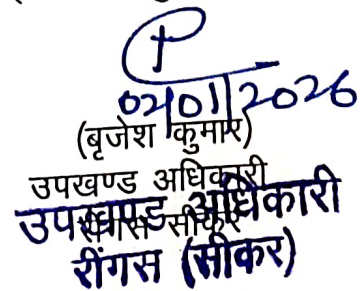 02/01/2026
(बृजेश कुमार)
उपखण्ड अधिकारी
रींगस सीकर
उपखण्ड अधिकारी
रींगस (सीकर)